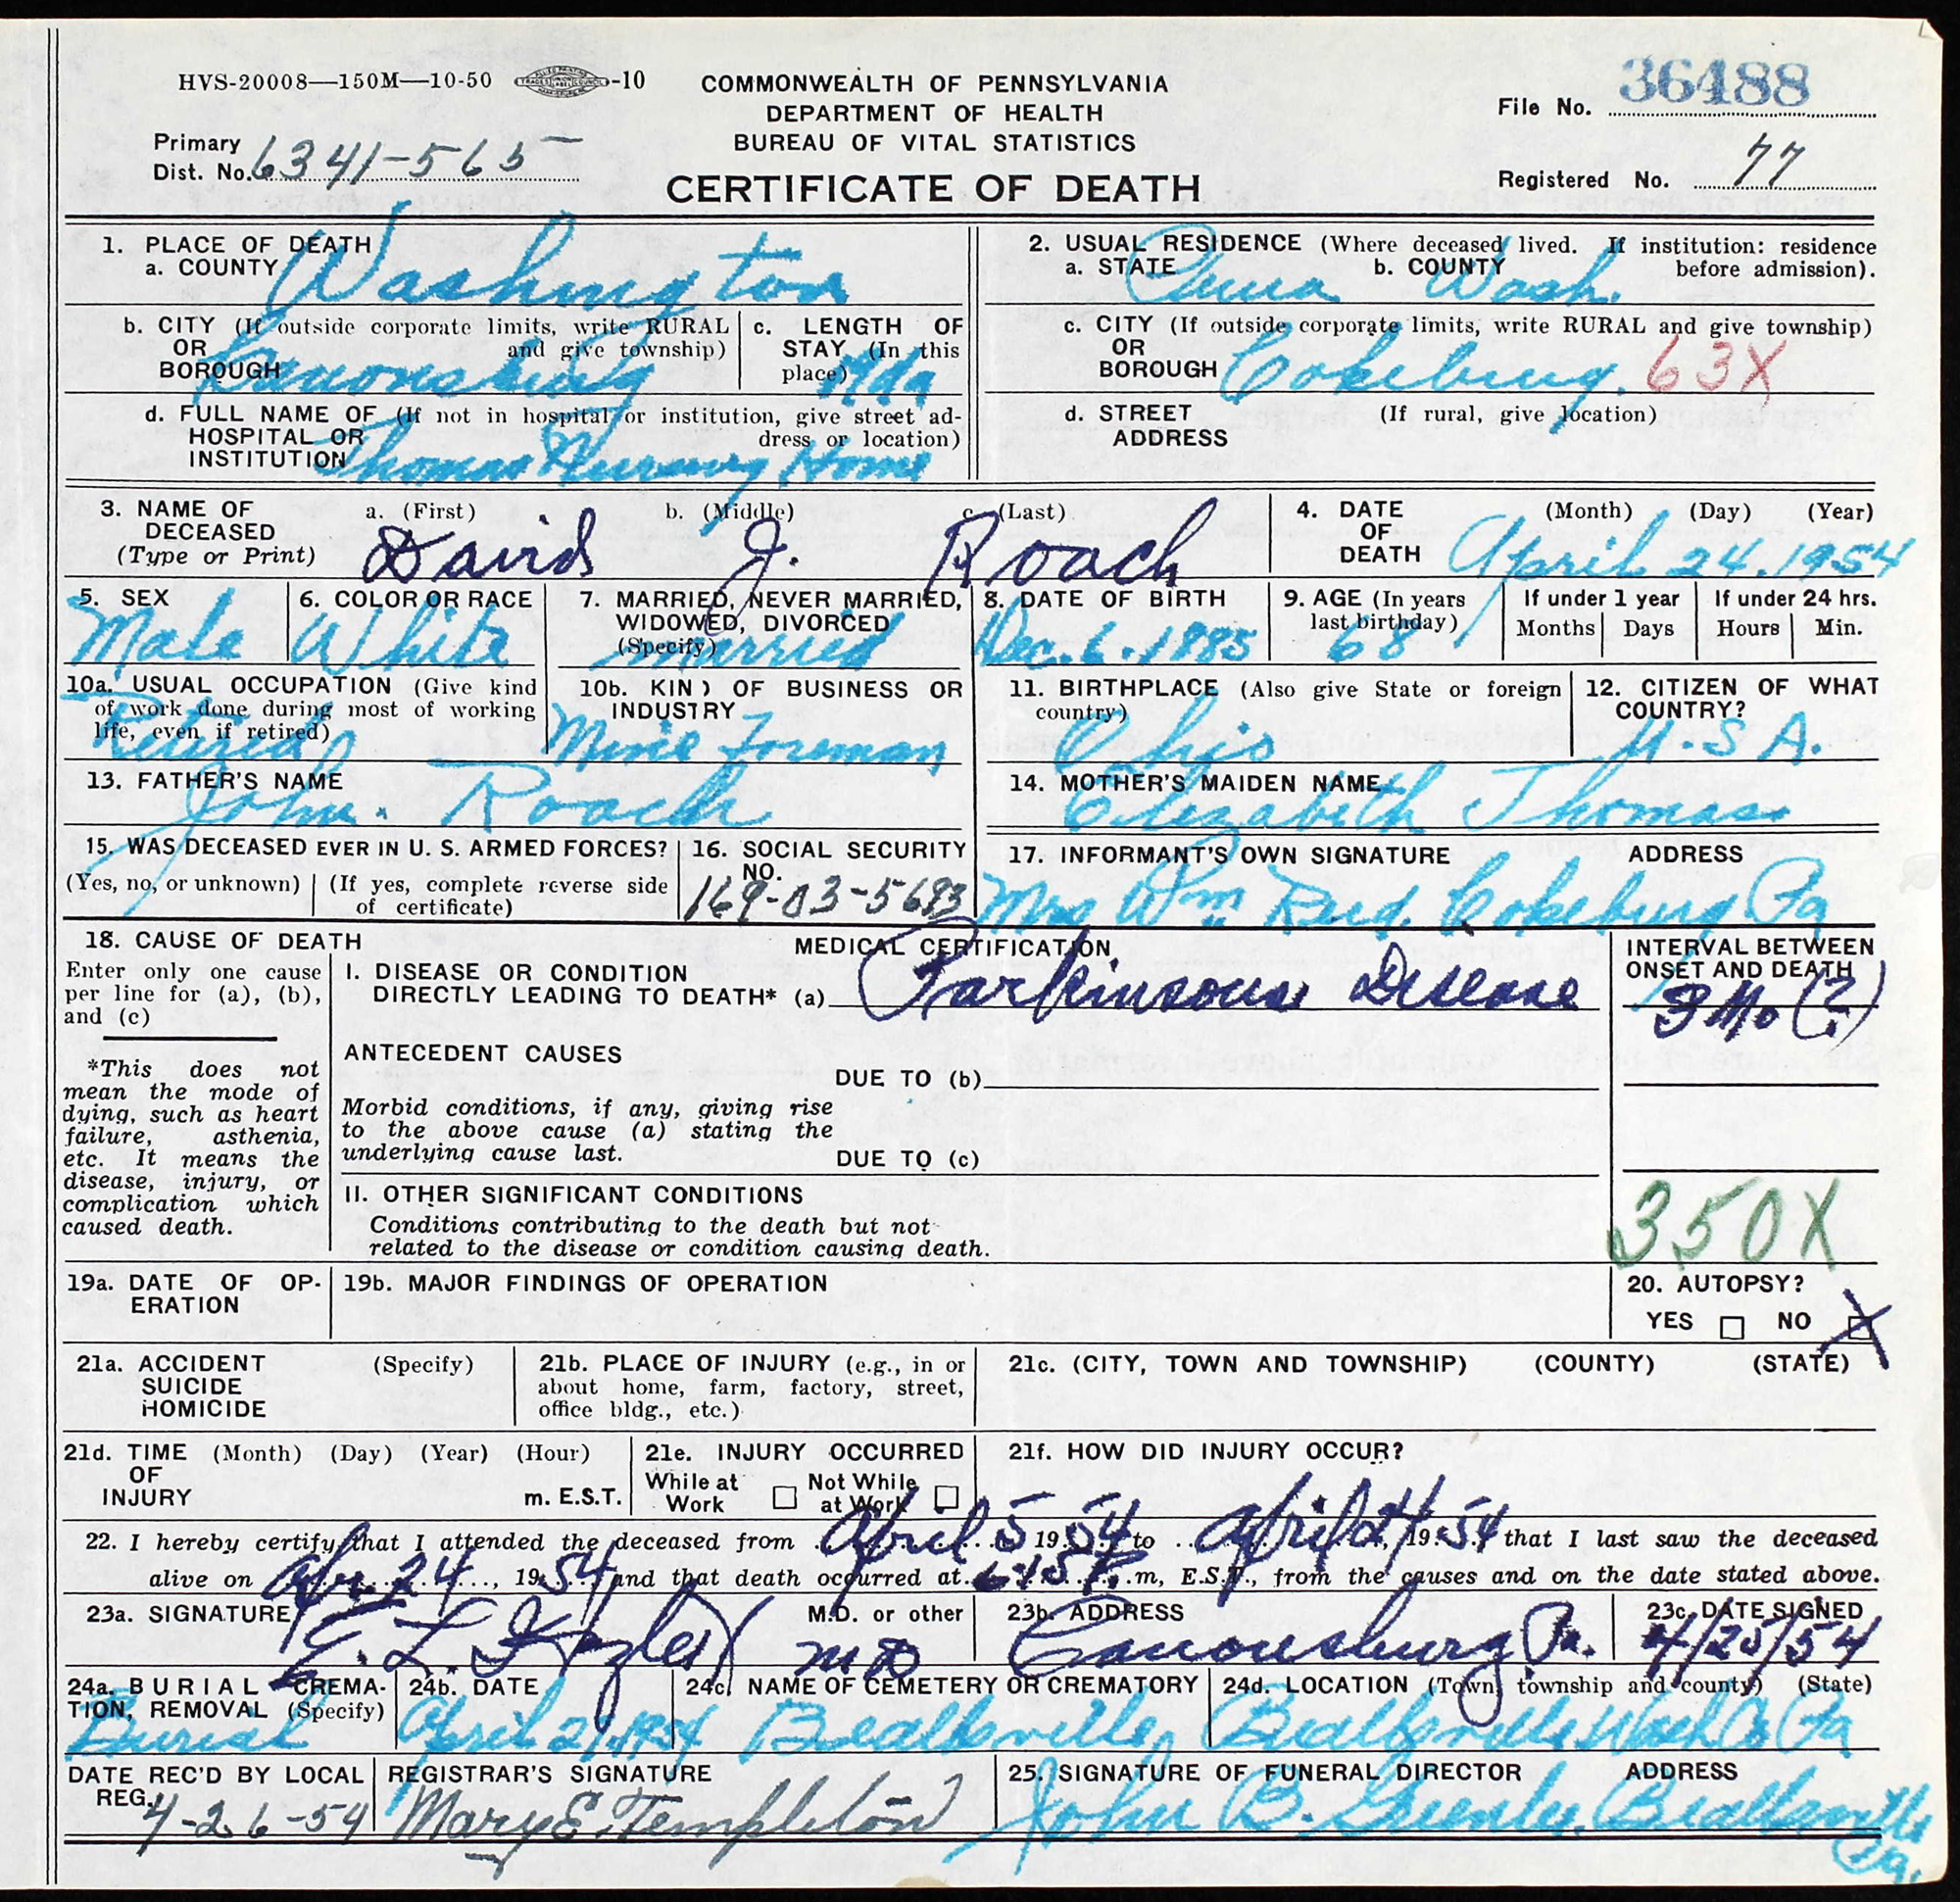 HVS-20008—150M—10-50 -10
COMMONWEALTH OF PENNSYLVANIA
DEPARTMENT OF HEALTH
BUREAU OF VITAL STATISTICS
CERTIFICATE OF DEATH
Primary
Dist. No. 6341-565
File No. 36488
Registered No. 77
1. PLACE OF DEATH
a. COUNTY Washington
b. CITY (If outside corporate limits, write RURAL
OR and give township)
BOROUGH Canonsburg
c. LENGTH OF
STAY (In this
place)
d. FULL NAME OF (If not in hospital or institution, give street ad-
HOSPITAL OR dress or location)
INSTITUTION Thomas Nursing Home
2. USUAL RESIDENCE (Where deceased lived. If institution: residence
a. STATE Penna b. COUNTY Wash. before admission).
c. CITY (If outside corporate limits, write RURAL and give township)
OR
BOROUGH Cokeburg. 63X
d. STREET (If rural, give location)
ADDRESS
3. NAME OF a. (First) b. (Middle) c. (Last)
DECEASED
(Type or Print) David J. Roach
4. DATE (Month) (Day) (Year)
OF
DEATH April 24. 1954
5. SEX
Male
6. COLOR OR RACE
White
7. MARRIED, NEVER MARRIED,
WIDOWED, DIVORCED
(Specify) married
8. DATE OF BIRTH
Dec. 6. 1885
9. AGE (In years
last birthday)
68
If under 1 year
Months Days
If under 24 hrs.
Hours Min.
10a. USUAL OCCUPATION (Give kind
of work done during most of working
life, even if retired)
Retired
10b. KIND OF BUSINESS OR
INDUSTRY
Mine Foreman
11. BIRTHPLACE (Also give State or foreign
country)
Ohio
12. CITIZEN OF WHAT
COUNTRY?
U.S A.
13. FATHER'S NAME
John. Roach
14. MOTHER'S MAIDEN NAME
Elizabeth Thomas
15. WAS DECEASED EVER IN U. S. ARMED FORCES?
(Yes, no, or unknown) (If yes, complete reverse side
of certificate)
16. SOCIAL SECURITY
NO.
169-03-5693
17. INFORMANT'S OWN SIGNATURE ADDRESS
Mrs Wm Reed. Cokeburg Pa
18. CAUSE OF DEATH
Enter only one cause
per line for (a), (b),
and (c)
*This does not
mean the mode of
dying, such as heart
failure, asthenia,
etc. It means the
disease, injury, or
complication which
caused death.
MEDICAL CERTIFICATION
I. DISEASE OR CONDITION
DIRECTLY LEADING TO DEATH* (a) Parkinsons Disease
ANTECEDENT CAUSES
DUE TO (b)
Morbid conditions, if any, giving rise
to the above cause (a) stating the
underlying cause last.
DUE TO (c)
II. OTHER SIGNIFICANT CONDITIONS
Conditions contributing to the death but not
related to the disease or condition causing death.
INTERVAL BETWEEN
ONSET AND DEATH
3 Mo (?)
350X
19a. DATE OF OP-
ERATION
19b. MAJOR FINDINGS OF OPERATION
20. AUTOPSY?
YES NO X
21a. ACCIDENT (Specify)
SUICIDE
HOMICIDE
21b. PLACE OF INJURY (e.g., in or
about home, farm, factory, street,
office bldg., etc.)
21c. (CITY, TOWN AND TOWNSHIP) (COUNTY) (STATE)
21d. TIME (Month) (Day) (Year) (Hour)
OF
INJURY m. E.S.T.
21e. INJURY OCCURRED
While at Not While
Work at Work
21f. HOW DID INJURY OCCUR?
22. I hereby certify that I attended the deceased from April 5 1954 to April 24, 1954 that I last saw the deceased
alive on Apr. 24, 1954 and that death occurred at 6:15 P.m, E.S.T., from the causes and on the date stated above.
23a. SIGNATURE M.D. or other
E. L. MD
23b. ADDRESS
Canonsburg Pa.
23c. DATE SIGNED
4/25/54
24a. BURIAL CREMA-
TION, REMOVAL (Specify)
Burial
24b. DATE
April 1954
24c. NAME OF CEMETERY OR CREMATORY
Beallsville
24d. LOCATION (Town, township and county) (State)
Beallsville Wash Co Pa
DATE REC'D BY LOCAL
REG. 4-26-54
REGISTRAR'S SIGNATURE
Mary E. Templeton
25. SIGNATURE OF FUNERAL DIRECTOR ADDRESS
John B. Greenlee. Beallsville
Pa.